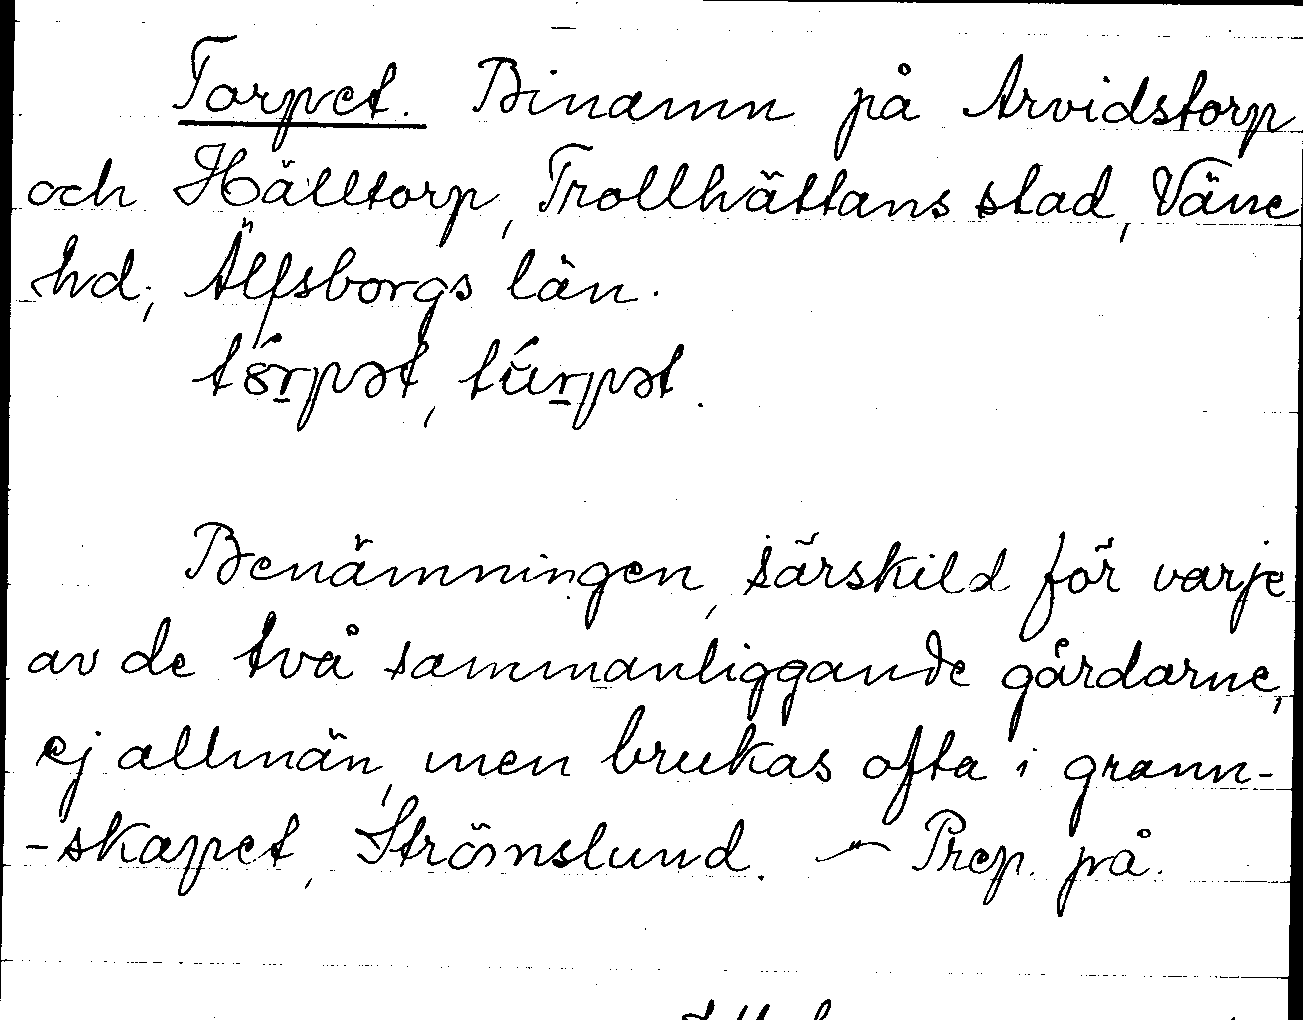 Torpet. Binamn på Arvidstorp
och Hälltorp, Trollhättans stad, Väne
hd; Älfsborgs län.
tórpət, túrpət.
Benämningen, särskild för varje
av de två sammanliggande gårdarne,
ej allmän, men brukas ofta i grann-
-skapet, Strömslund. — Prep. på.